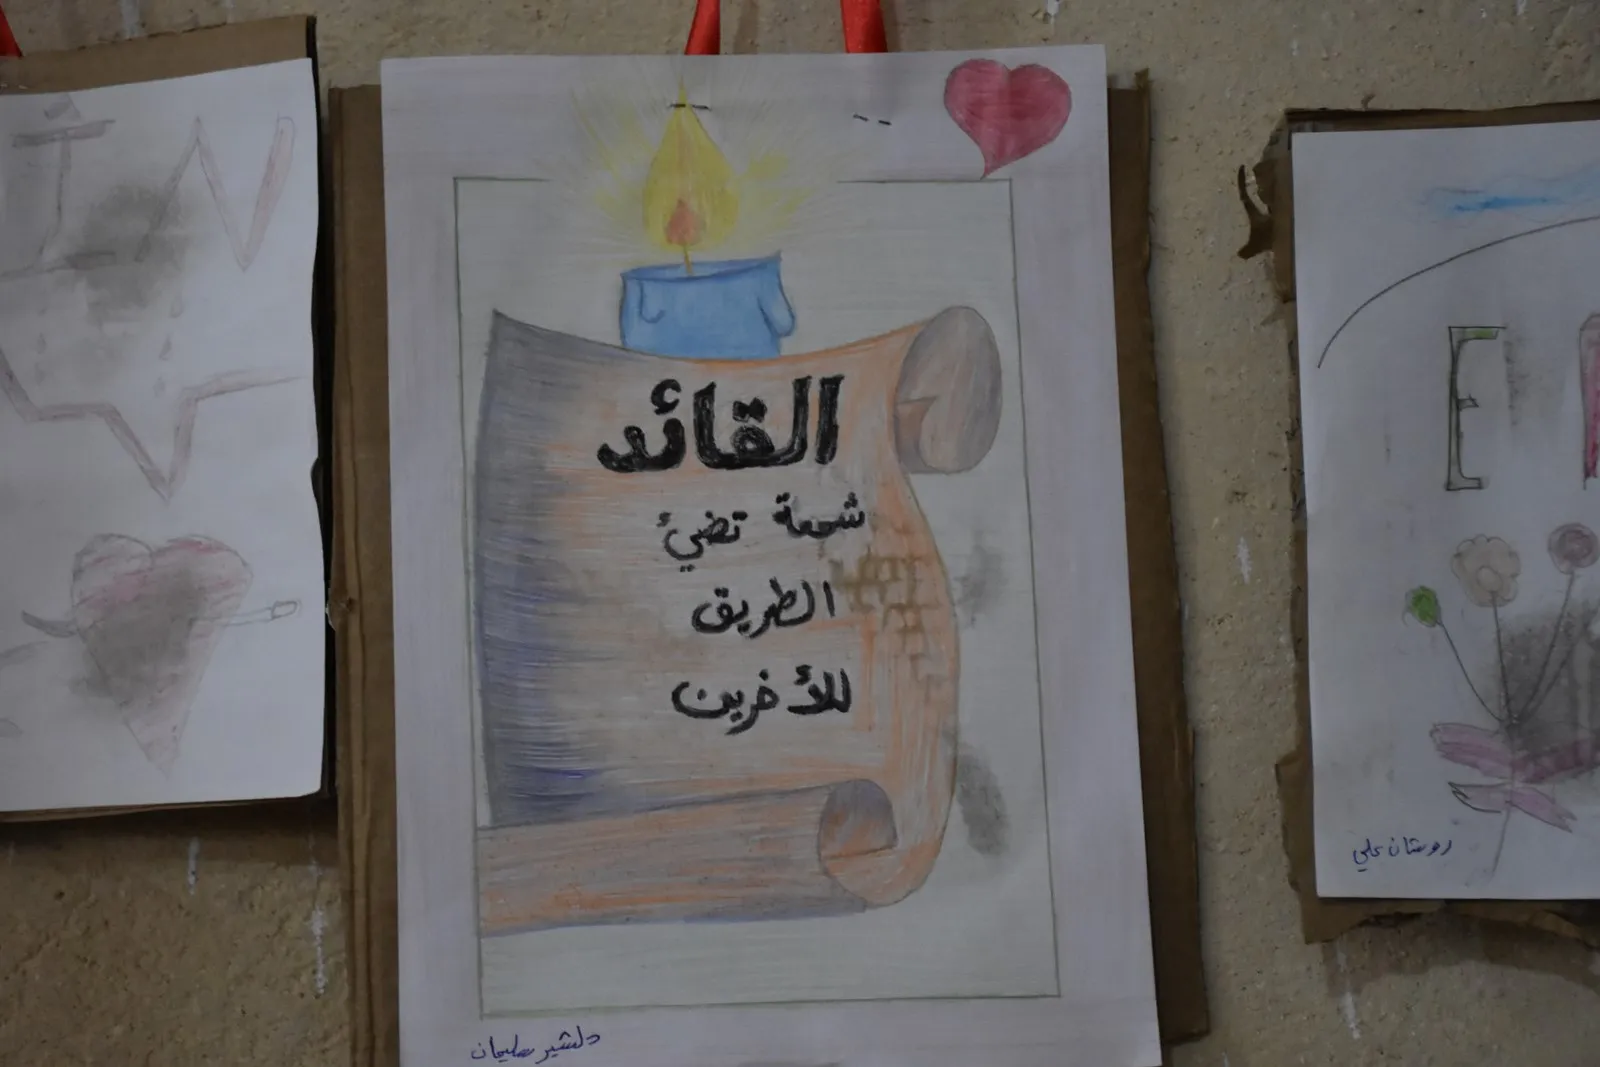 القائد
شمعة تضيئ
الطريق
للأخرين
دلشير سليمان
E
روستان علي